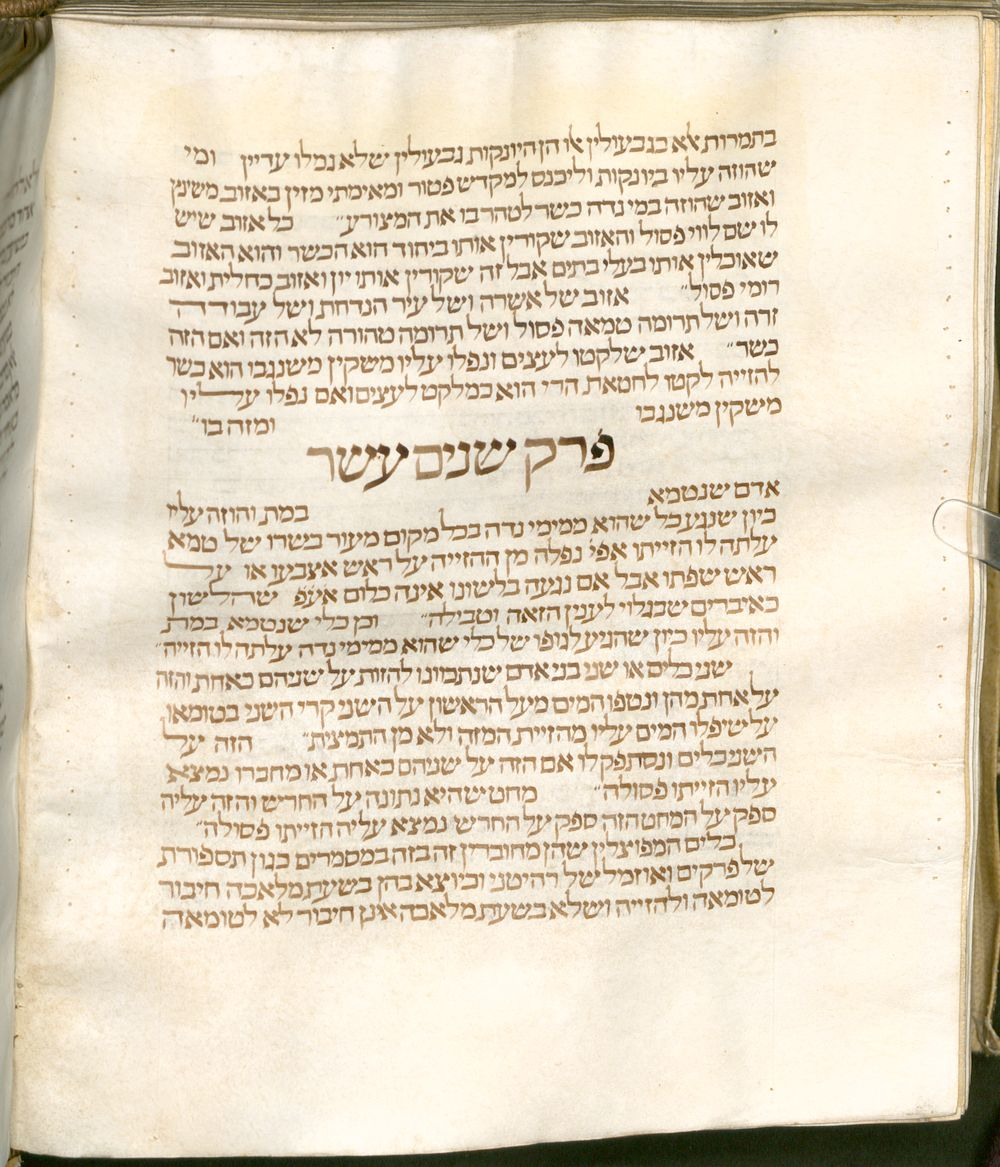 בתמרות אלא בגבעולין אלו הן היונקות גבעולין שלא גמלו עדיין ומי
שהוזה עליו ביונקות וליכנס למקדש פטור ומאימתי מזין באזוב משינץ
ואזוב שהוזה במי נדה כשר לטהר בו את המצורע״ כל אזוב שיש
לו שם לווי פסול והאזוב שקורין אותו ביחוד הוא הכשר והוא האזוב
שאוכלין אותו בעלי בתים אבל זה שקורין אותו יון ואזוב כחלית ואזוב
רומי פסול״ אזוב של אשרה ושל עיר הנדחת ושל עבודה
זרה ושל תרומה טמאה פסול ושל תרומה טהורה לא הזה ואם הזה
כשר״ אזוב שלקטו לעצים ונפלו עליו משקין משנגבו הוא כשר
להזייה לקטו לחטאת הרי הוא כמלקט לעצים ואם נפלו עליו
משקין משנגבו ומזה בו״
פרק שנים עשר
אדם שנטמא במת והוזה עליו
כיון שנגע כל שהוא ממימי נדה בכל מקום מעור בשרו של טמא
עלתה לו הזייתו אפי׳ נפלה מן ההזייה על ראש אצבעו או על
ראש שפתו אבל אם נגעה בלשונו אינה כלום אעפ שהלשון
כאיברים שבגלוי לענין הזאה וטבילה״ וכן כלי שנטמא במת
והזה עליו כיון שהגיע לגופו של כלי שהוא ממימי נדה עלתה לו הזייה״
שני כלים או שני בני אדם שנתכוונו להזות על שניהם כאחת והזה
על אחת מהן ונטפו המים מעל הראשון על השני הרי השני בטומאתו
עד שיפלו המים עליו מהזיית המזה ולא מן התמצית״ הזה על
השני כלים ונסתפק לו אם הזה על שניהם כאחת או מחברו נמצא
עליו הזייתו פסולה״ מחט שהיא נתונה על החרש והזה עליה
ספק על המחט הזה ספק על החרש נמצא עליה הזייתו פסולה״
כלים המפוצלין שהן מחוברין זה בזה במסמרים כגון תספורת
של פרקים ואוזמל של רהיטני וכיוצא בהן בשעת מלאכה חיבור
לטומאה ולהזייה ושלא בשעת מלאכה אינן חיבור לא לטומאה